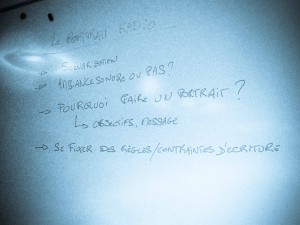 Le PORTRAIT RADIO
→ SCÉNARISATION
→ AMBIANCE SONORE OU PAS ?
→ POURQUOI FAIRE UN PORTRAIT ?
↳ OBJECTIFS, MESSAGE
→ SE FIXER DES RÈGLES/CONTRAINTES D'ECRITURE